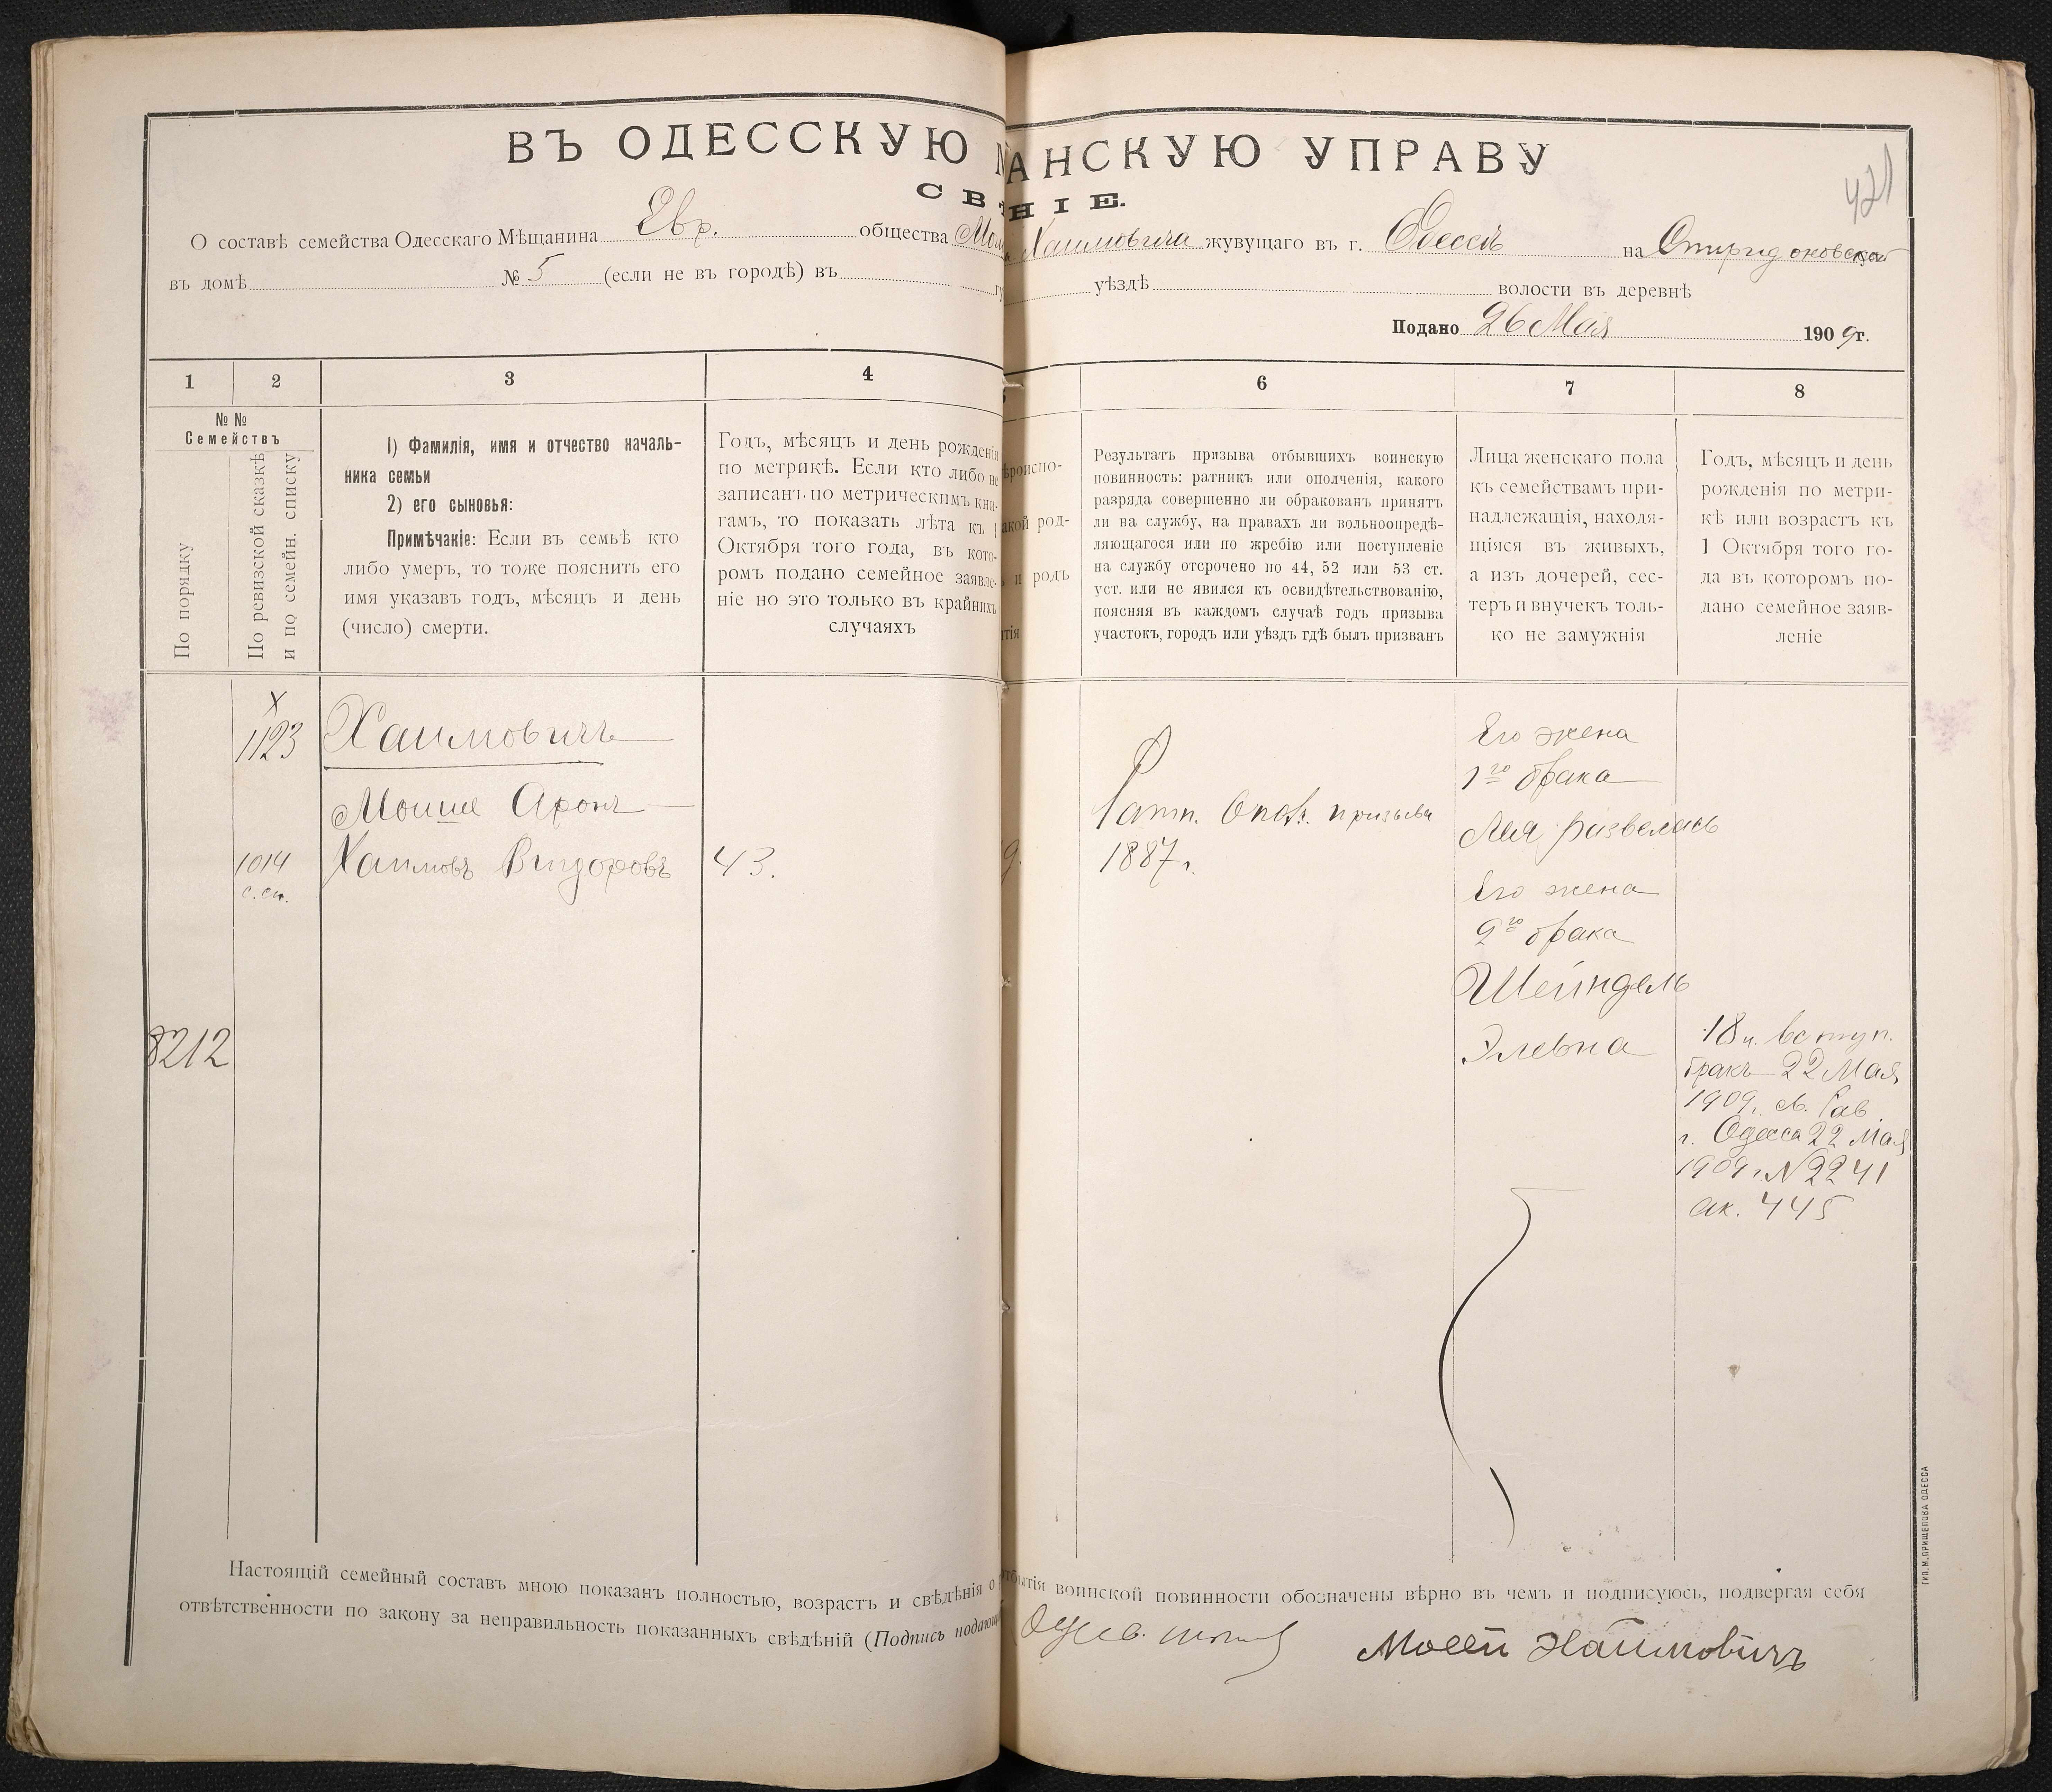 ВЪ ОДЕССКУЮ АНСКУЮ УПРАВУ
421
СВ НІЕ.
О составѣ семейства Одесскаго Мѣщанина Евр. общества Хаимовича жувущаго въ г. Одессѣ на Спиридоновской
въ домѣ № 5 (если не въ городѣ) въ уѣздѣ волости въ деревнѣ
Подано 26 Мая 1909г.
1 2 3 4 6 7 8
№ №
Семействъ
По порядку
По ревизской сказкѣ
и по семейн. списку
1) Фамилія, имя и отчество началь-
ника семьи
2) его сыновья:
Примѣчакіе: Если въ семьѣ кто
либо умеръ, то тоже пояснить его
имя указавъ годъ, мѣсяцъ и день
(число) смерти.
Годъ, мѣсяцъ и день рожденія
по метрикѣ. Если кто либо не
записанъ по метрическимъ кни-
гамъ, то показать лѣта къ 1
Октября того года, въ кото-
ромъ подано семейное заявле-
ніе но это только въ крайнихъ
случаяхъ
ѣроиспо-
акой род-
и родъ
тія
Результатъ призыва отбывшихъ воинскую
повинность: ратникъ или ополченія, какого
разряда совершенно ли обракованъ принятъ
ли на службу, на правахъ ли вольноопредѣ-
ляющагося или по жребію или поступленіе
на службу отсрочено по 44, 52 или 53 ст.
уст. или не явился къ освидѣтельствованію,
поясняя въ каждомъ случаѣ годъ призыва
участокъ, городъ или уѣздъ гдѣ былъ призванъ
Лица женскаго пола
къ семействамъ при-
надлежащія, находя-
щіяся въ живыхъ,
а изъ дочерей, сес-
теръ и внучекъ толь-
ко не замужнія
Годъ, мѣсяцъ и день
рожденія по метри-
кѣ или возрастъ къ
1 Октября того го-
да въ которомъ по-
дано семейное заяв-
леніе
х
1123 Хаимовичъ
Моише Аронъ
1014 Хаимовъ Видоровъ 43.
с. сп.
8212
Ратн. Опол. призыва
1887 г.
Его жена
1го брака
Лея развелась
Его жена
2го брака
Шейндель
Элевна
18 л. вступ.
бракъ 22 Мая
1909. м. Рав.
г. Одесса 22 Мая
1909 г. N 2241
ак. 445
Настоящій семейный составъ мною показанъ полностью, возрастъ и свѣдѣнія о отбытія воинской повинности обозначены вѣрно въ чемъ и подписуюсь, подвергая себя
отвѣтственности по закону за неправильность показанныхъ свѣдѣній (Подпись подающ
Мосей Хаимовичъ
ТИП. М. ПРИЩЕПОВА ОДЕССА